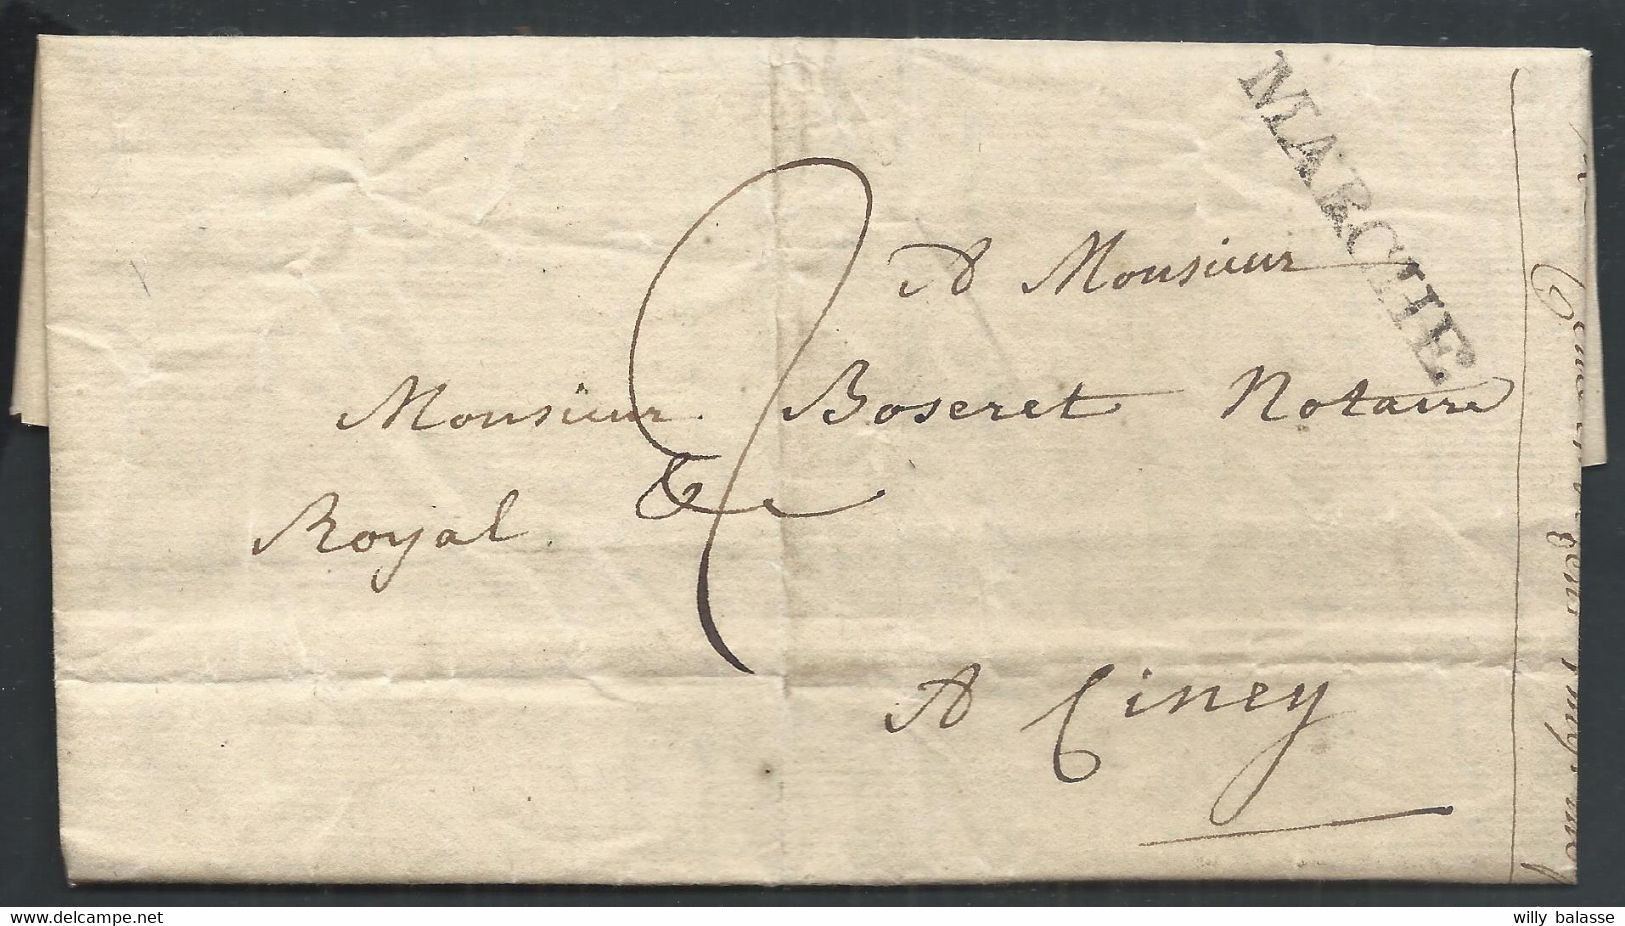 MARCHE.
A Monsieur
Monsieur Boseret Notaire
Royal &c
A Ciney
willy balasse